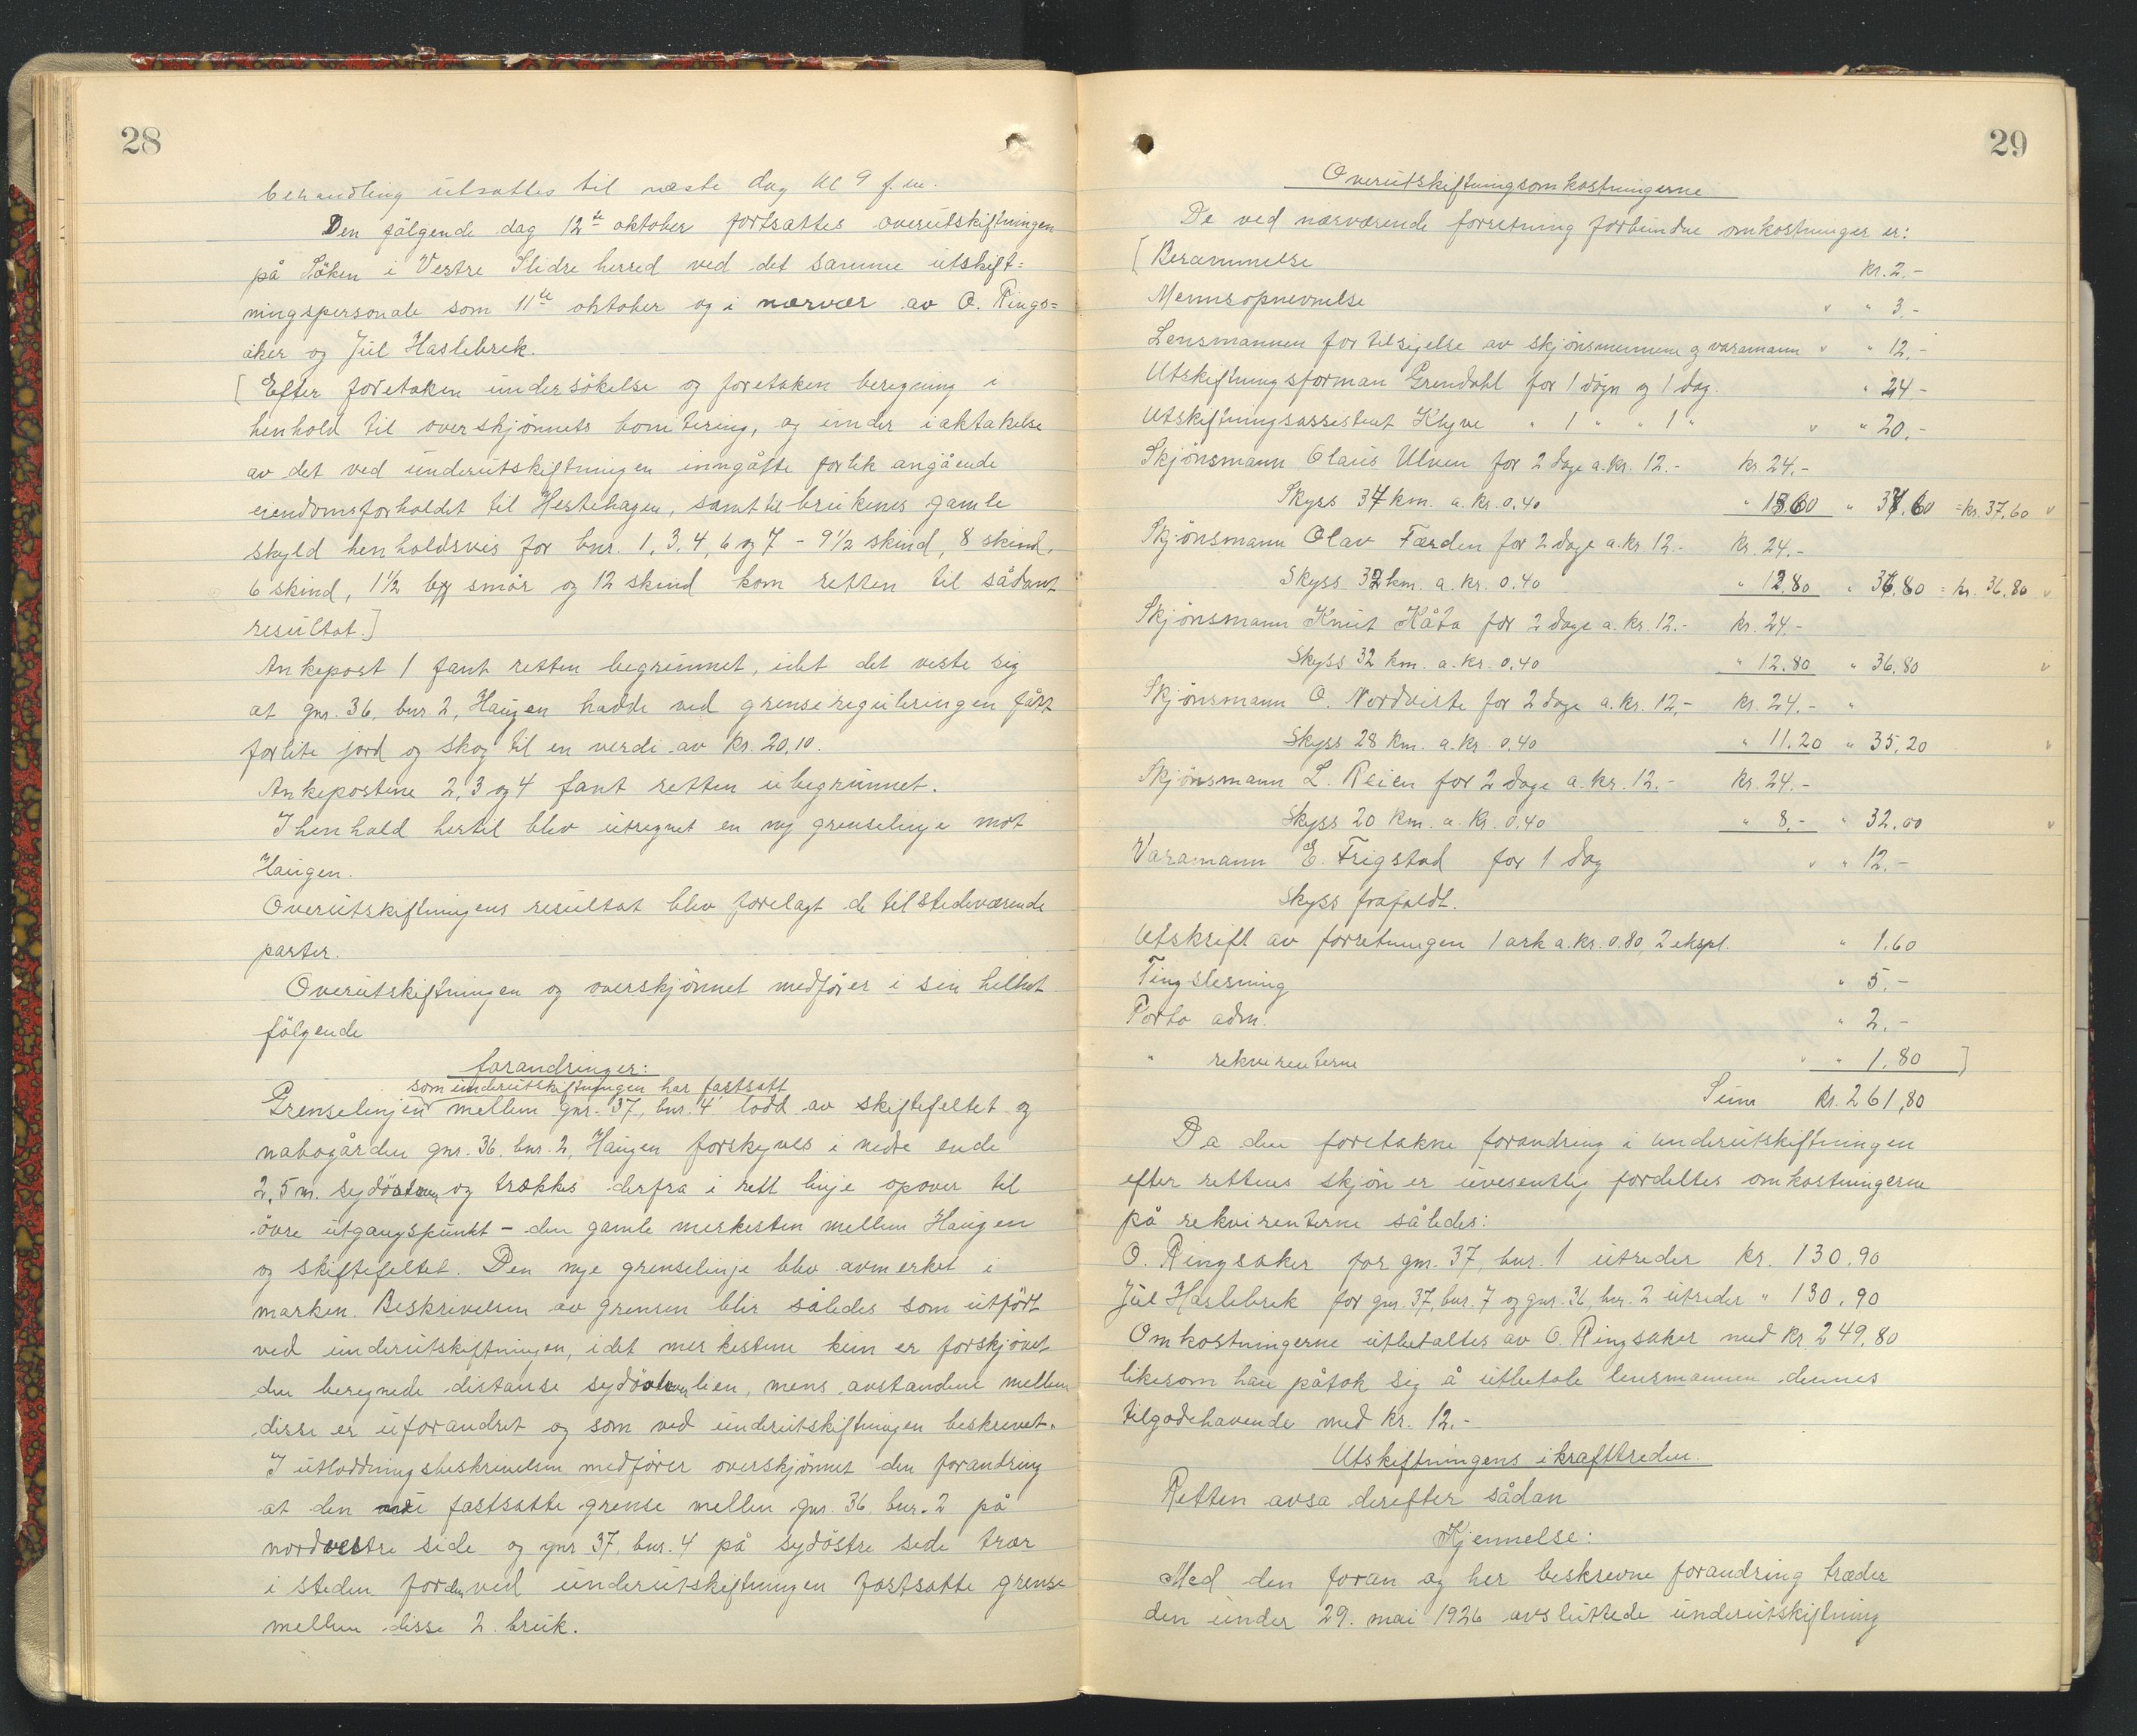 28
behandling utsattes til næste dag kl 9 f.m.
Den følgende dag 12te oktober fortsattes overutskiftningen
på Söken i Vestre Slidre herred ved det samme utskift=
ningspersonale som 11te oktober og i nærvær av O. Rings=
aker og Jul Haslebrek.
[Efter foretaken undersökelse og foretaken beregning i
henhold til overskjönnets bonitering, og under iaktakelse
av det ved underutskiftningen inngåtte forlik angående
eiendomsforholdet til Hestehagen, samt til brukenes gamle
skyld henholdsvis for bnr. 1, 3, 4, 6 og 7 - 9 1/2 skind, 8 skind,
6 skind, 1 1/2 smör og 12 skind kom retten til sådant
resultat.]
Ankepost 1 fant retten begrunnet, idet det viste sig
at gnr. 36, bnr. 2, Haugen hadde ved grensereguleringen fått
forlite jord og skog til en verdi av kr. 20,10.
Ankepostene 2, 3 og 4 fant retten ubegrunnet.
I henhold hertil blev utregnet en ny grenselinje mot
Haugen.
Overutskiftningens resultat blev forelagt de tilstedeværende
parter.
Overutskiftningen og overskjönnet medförer i sin helhet
fölgende
forandringer:
som underutskiftningen har fastsatt
Grenselinjen mellem gnr. 37, bnr. 4 lodd av skiftefeltet og
nabogården gnr. 36, bnr. 2, Haugen forskyves i nedre ende
2,5 m. sydöstover og trækkes derfra i rett linje opover til
övre utgangspunkt - den gamle merkesten mellem Haugen
og skiftefeltet. Den nye grenselinje blev avmerket i
marken. Beskrivelsen av grensen blir således som utfört
ved underutskiftningen, idet merkestene kun er forskjövet
den beregnede distanse sydöstover lien, mens avstandene mellem
disse er uforandret og som ved underutskiftningen beskrevet.
I utloddningsbeskrivelsen medförer overskjönnet den forandring
at den nu fastsatte grense mellem gnr. 36, bnr. 2 på
nordvestre side og gnr 37, bnr. 4 på sydöstre side trær
i steden for den ved underutskiftningen fastsatte grense
mellem disse 2 bruk.
29
Overutskiftningsomkostningerne
De ved nærværende forretning forbundne omkostninger er:
[Berammelse kr. 2.-
Mennsopnevnelse " 3.-
Lensmannen for tilsigelse av skjönsmennene og varamann " 12.-
Utskiftningsforman Grendahl for 1 dögn og 1 dag. " 24-
Utskiftningsassistent Klyve " 1 " " 1 " " 20.-
Skjönsmann Olaus Ulven for 2 dage a. kr. 12.- kr. 24.-
Skyss 34 km. a. kr. 0.40 " 13.60 " 37.60 = kr. 37,60
Skjönsmann Olav Færden for 2 dage a. kr. 12.- kr. 24.-
Skyss 32 km. a. kr. 0.40 " 12.80 " 36.80 = kr. 36,80
Skjönsmann Knut Kåta for 2 dage a. kr. 12.- kr. 24.-
Skyss 32 km. a. kr. 0.40 " 12.80 " 36.80
Skjönsmann O. Nordviste for 2 dage a. kr. 12,- kr. 24.- "
Skyss 28 km. a. kr. 0.40 " 11.20 " 35,20
Skjönsmann L. Reien for 2 dage a. kr. 12.- kr. 24.-
Skyss 20 km. a. kr. 0.40 " 8.- " 32.00
Varamann E. Frigstad for 1 dag " 12.-
Skyss frafaldt.
Utskrift av forretningen 1 ark a. kr. 0.80, 2 ekspl. " 1.60
Tinglesning " 5.-
Porto adm. " 2.-
" rekvirenterne " 1.80]
Sum kr. 261,80
Da den foretakne forandring i underutskiftningen
efter rettens skjön er uvesentlig fordeltes omkostningerne
på rekvirenterne således:
O. Ringsaker for gnr. 37, bnr. 1 utreder kr. 130.90
Jul Haslebrek for gnr. 37, bnr. 7 og gnr. 36, bnr. 2 utreder " 130.90
Omkostningerne utbetaltes av O. Ringsaker med kr. 249,80
likesom han påtok sig å utbetale lensmannen dennes
tilgodehavende med kr. 12.-
Utskiftningens ikrafttreden.
Retten avsa derefter sådan
Kjennelse:
Med den foran og her beskrevne forandring træder
den under 29. mai 1926 avsluttede underutskiftning